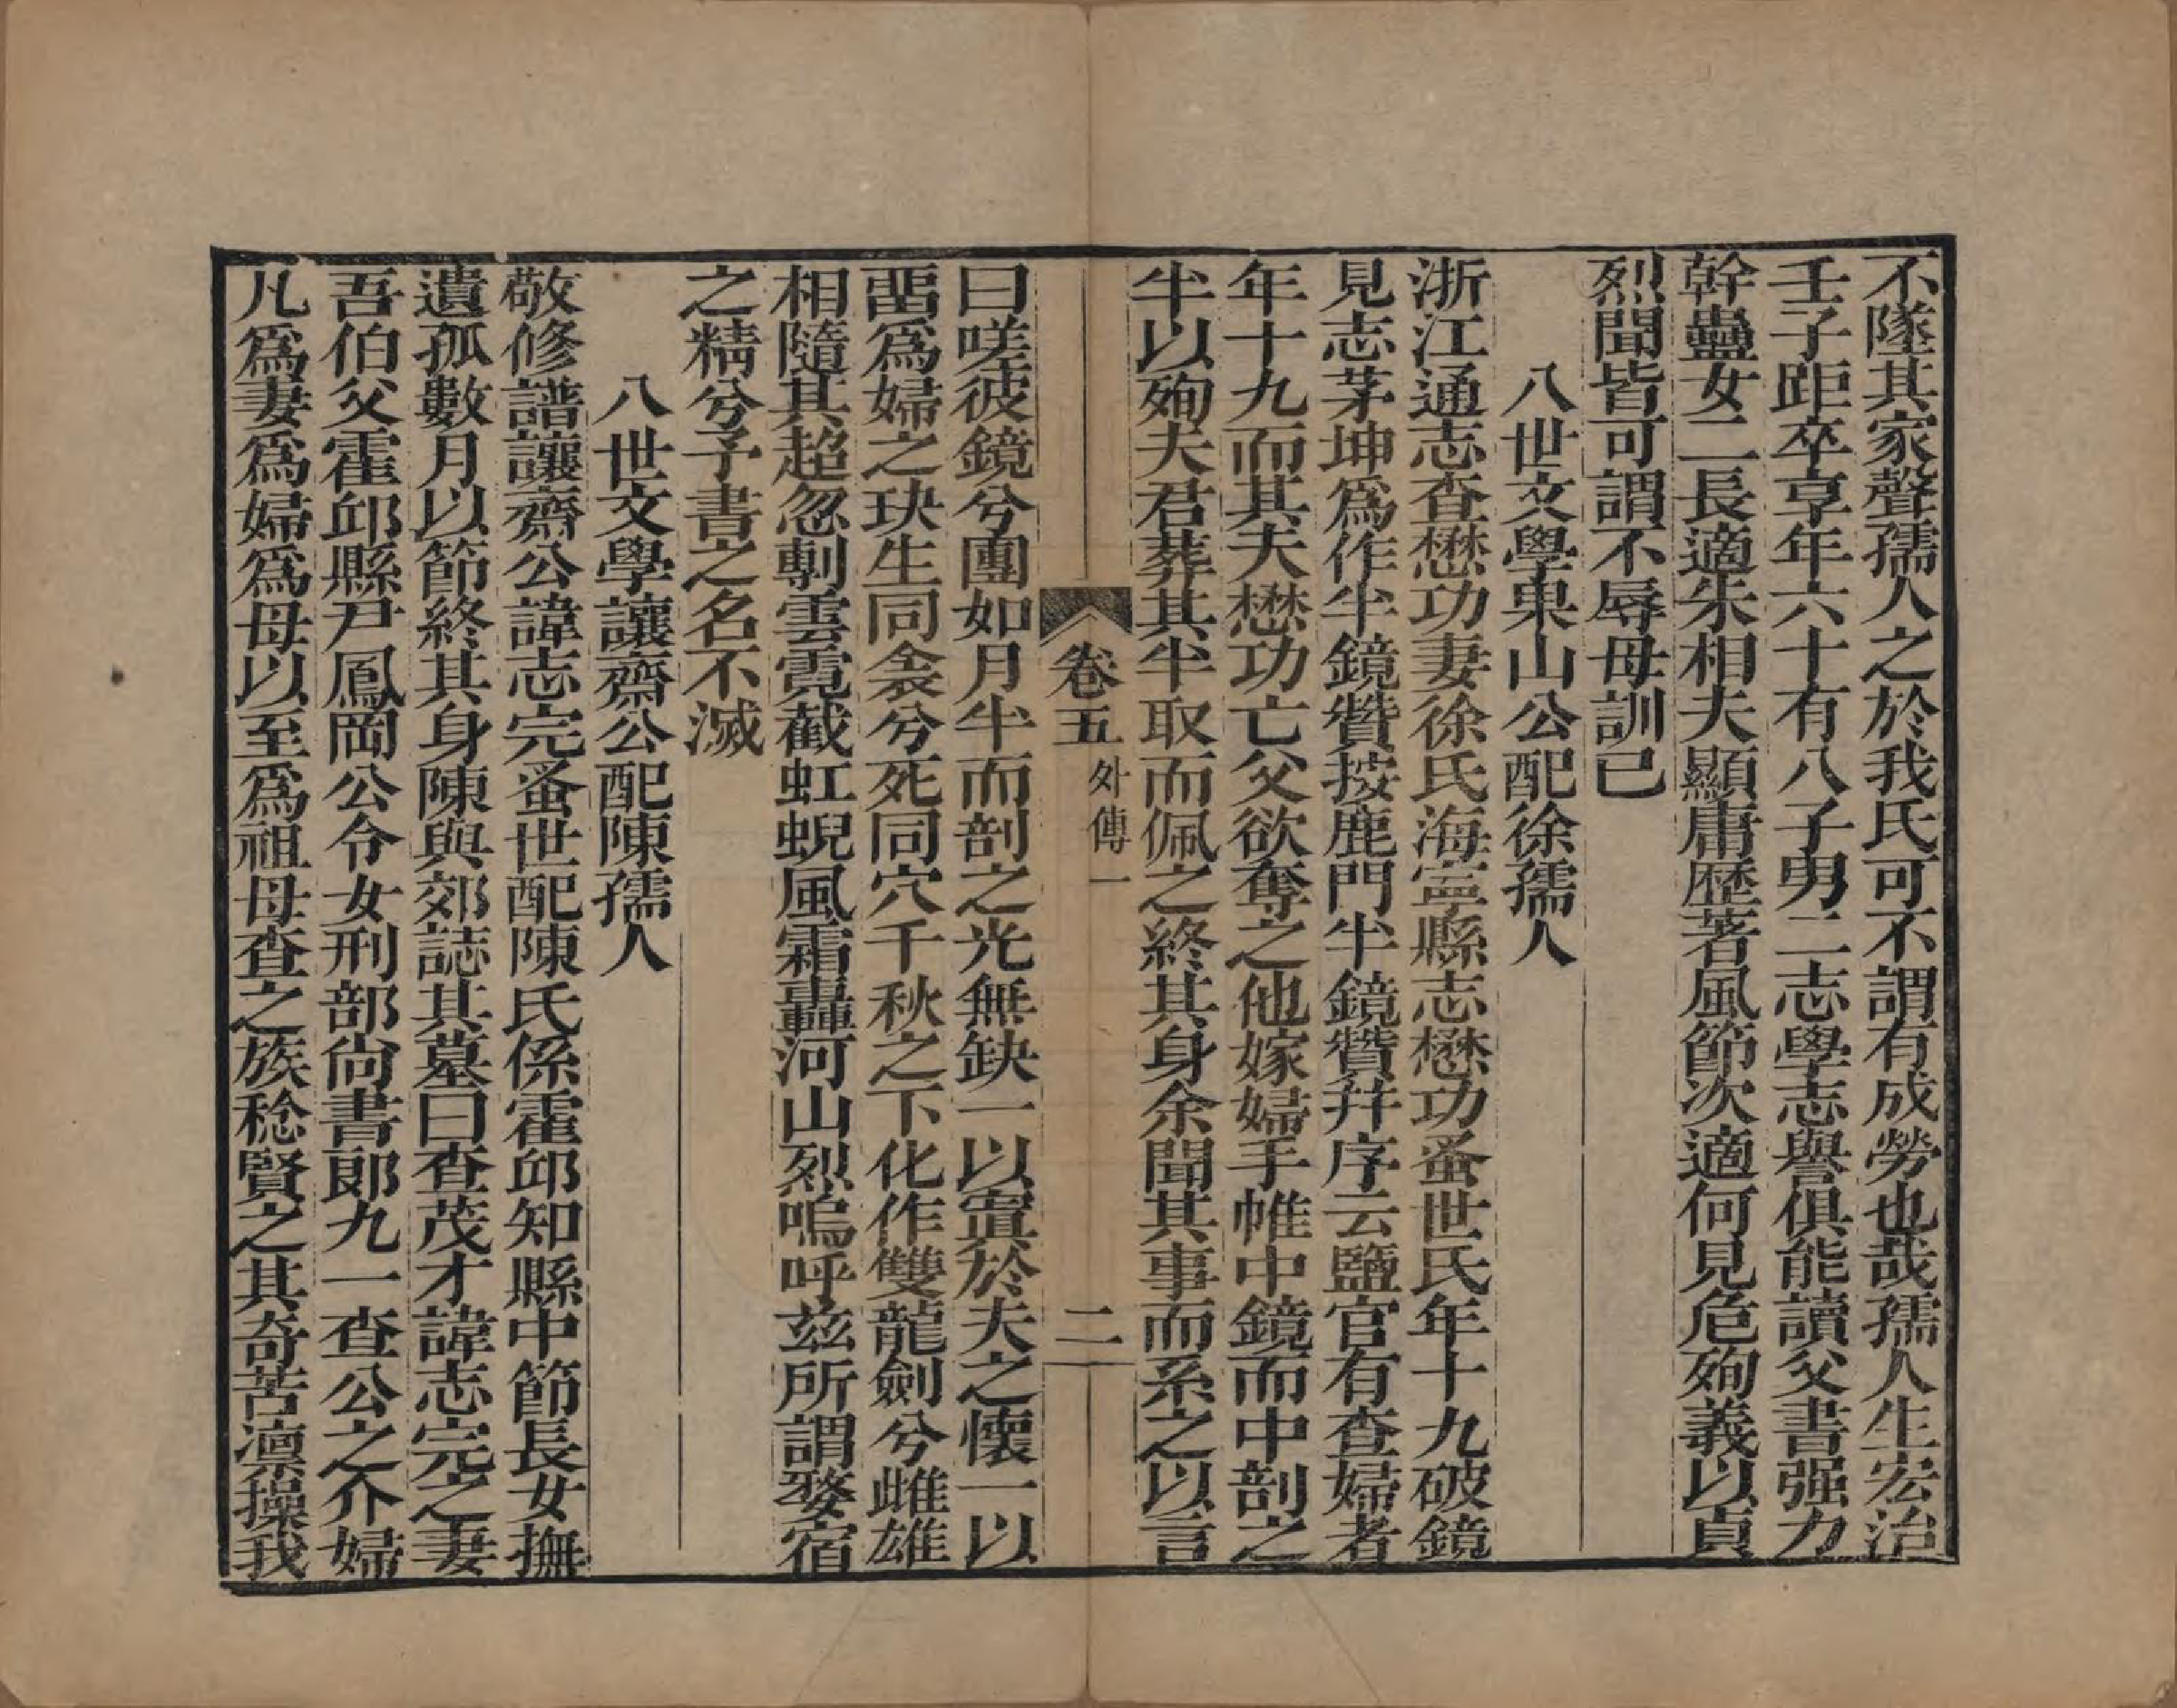 不墜其家聲孺人之於我氏可不謂有成勞也哉孺人生宏治
壬子距卒享年六十有八子男二志學志譽俱能讀父書强力
幹蠱女二長適朱相夫顯庸歴著風節次適何見危殉義以貞
烈聞皆可謂不辱母訓已
八世文學東山公配徐孺人
浙江通志查懋功妻徐氏海寧縣志懋功蚤世氏年十九破鏡
見志茅坤爲作半鏡贊按鹿門半鏡贊幷序云鹽官有查婦者
年十九而其夫懋功亡父欲奪之他嫁婦手帷中鏡而中剖之
半以殉夫君葬其半取而佩之終其身余聞其事而系之以言
卷五 外傳一 二
曰嗟彼鏡兮團如月半而剖之光無缺一以寘於夫之懷一以
畱爲婦之玦生同衾兮死同穴千秋之下化作雙龍劍兮雌雄
相隨其超忽剸雲霓截虹蜺風霜轟河山烈嗚呼兹所謂婺宿
之精兮予書之名不滅
八世文學讓齋公配陳孺人
敬修譜讓齋公諱志完蚤世配陳氏係霍邱知縣中節長女撫
遺孤數月以節終其身陳與郊誌其墓曰查茂才諱志完之妻
吾伯父霍邱縣尹鳳岡公令女刑部尙書郞九一查公之介婦
凡爲妻爲婦爲母以至爲祖母查之族稔賢之其奇苦凛操我